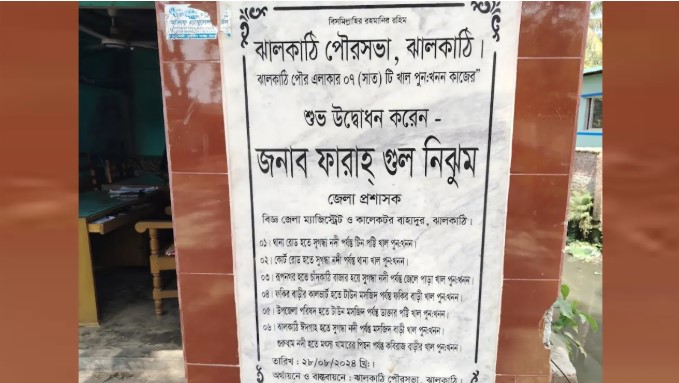 বিসমিল্লাহির রহমানির রহিম
ঝালকাঠি পৌরসভা, ঝালকাঠি।
ঝালকাঠি পৌর এলাকার ০৭ (সাত) টি খাল পুন:খনন কাজের"
শুভ উদ্বোধন করেন -
জনাব ফারাহ্ গুল নিঝুম
জেলা প্রশাসক
বিজ্ঞ জেলা ম্যাজিস্ট্রেট ও কালেকটর বাহাদুর, ঝালকাঠি।
০১। থানা রোড হতে সুগন্ধা নদী পর্যন্ত টিন পট্টি খাল পুন:খনন।
০২। কোর্ট রোড হতে সুগন্ধা নদী পর্যন্ত থানা খাল পুন:খনন।
০৩। রূপনগর হতে চাঁদকাঠি বাজার হয়ে সুগন্ধা নদী পর্যন্ত জেলে পাড়া খাল পুন:খনন।
০৪। ফকির বাড়ীর কালভার্ট হতে টাউন মসজিদ পর্যন্ত ফকির বাড়ী খাল পুন:খনন।
০৫। উপজেলা পরিষদ হতে টাউন মসজিদ পর্যন্ত ডাক্তার পট্টি খাল পুন:খনন।
০৬। ঝালকাঠি ঈদগাহ হতে সুগন্ধা নদী পর্যন্ত মসজিদ বাড়ী খাল পুন:খনন।
গুরুধাম নদী হতে মৎস্য খামারের পিছন পর্যন্ত কবিরাজ বাড়ীর খাল পুন:খনন।
তারিখ : ২৮/০৮/২০২৪ খ্রি:।
অর্থায়নে ও বাস্তবায়নে : ঝালকাঠি পৌরসভা, ঝালকাঠি।